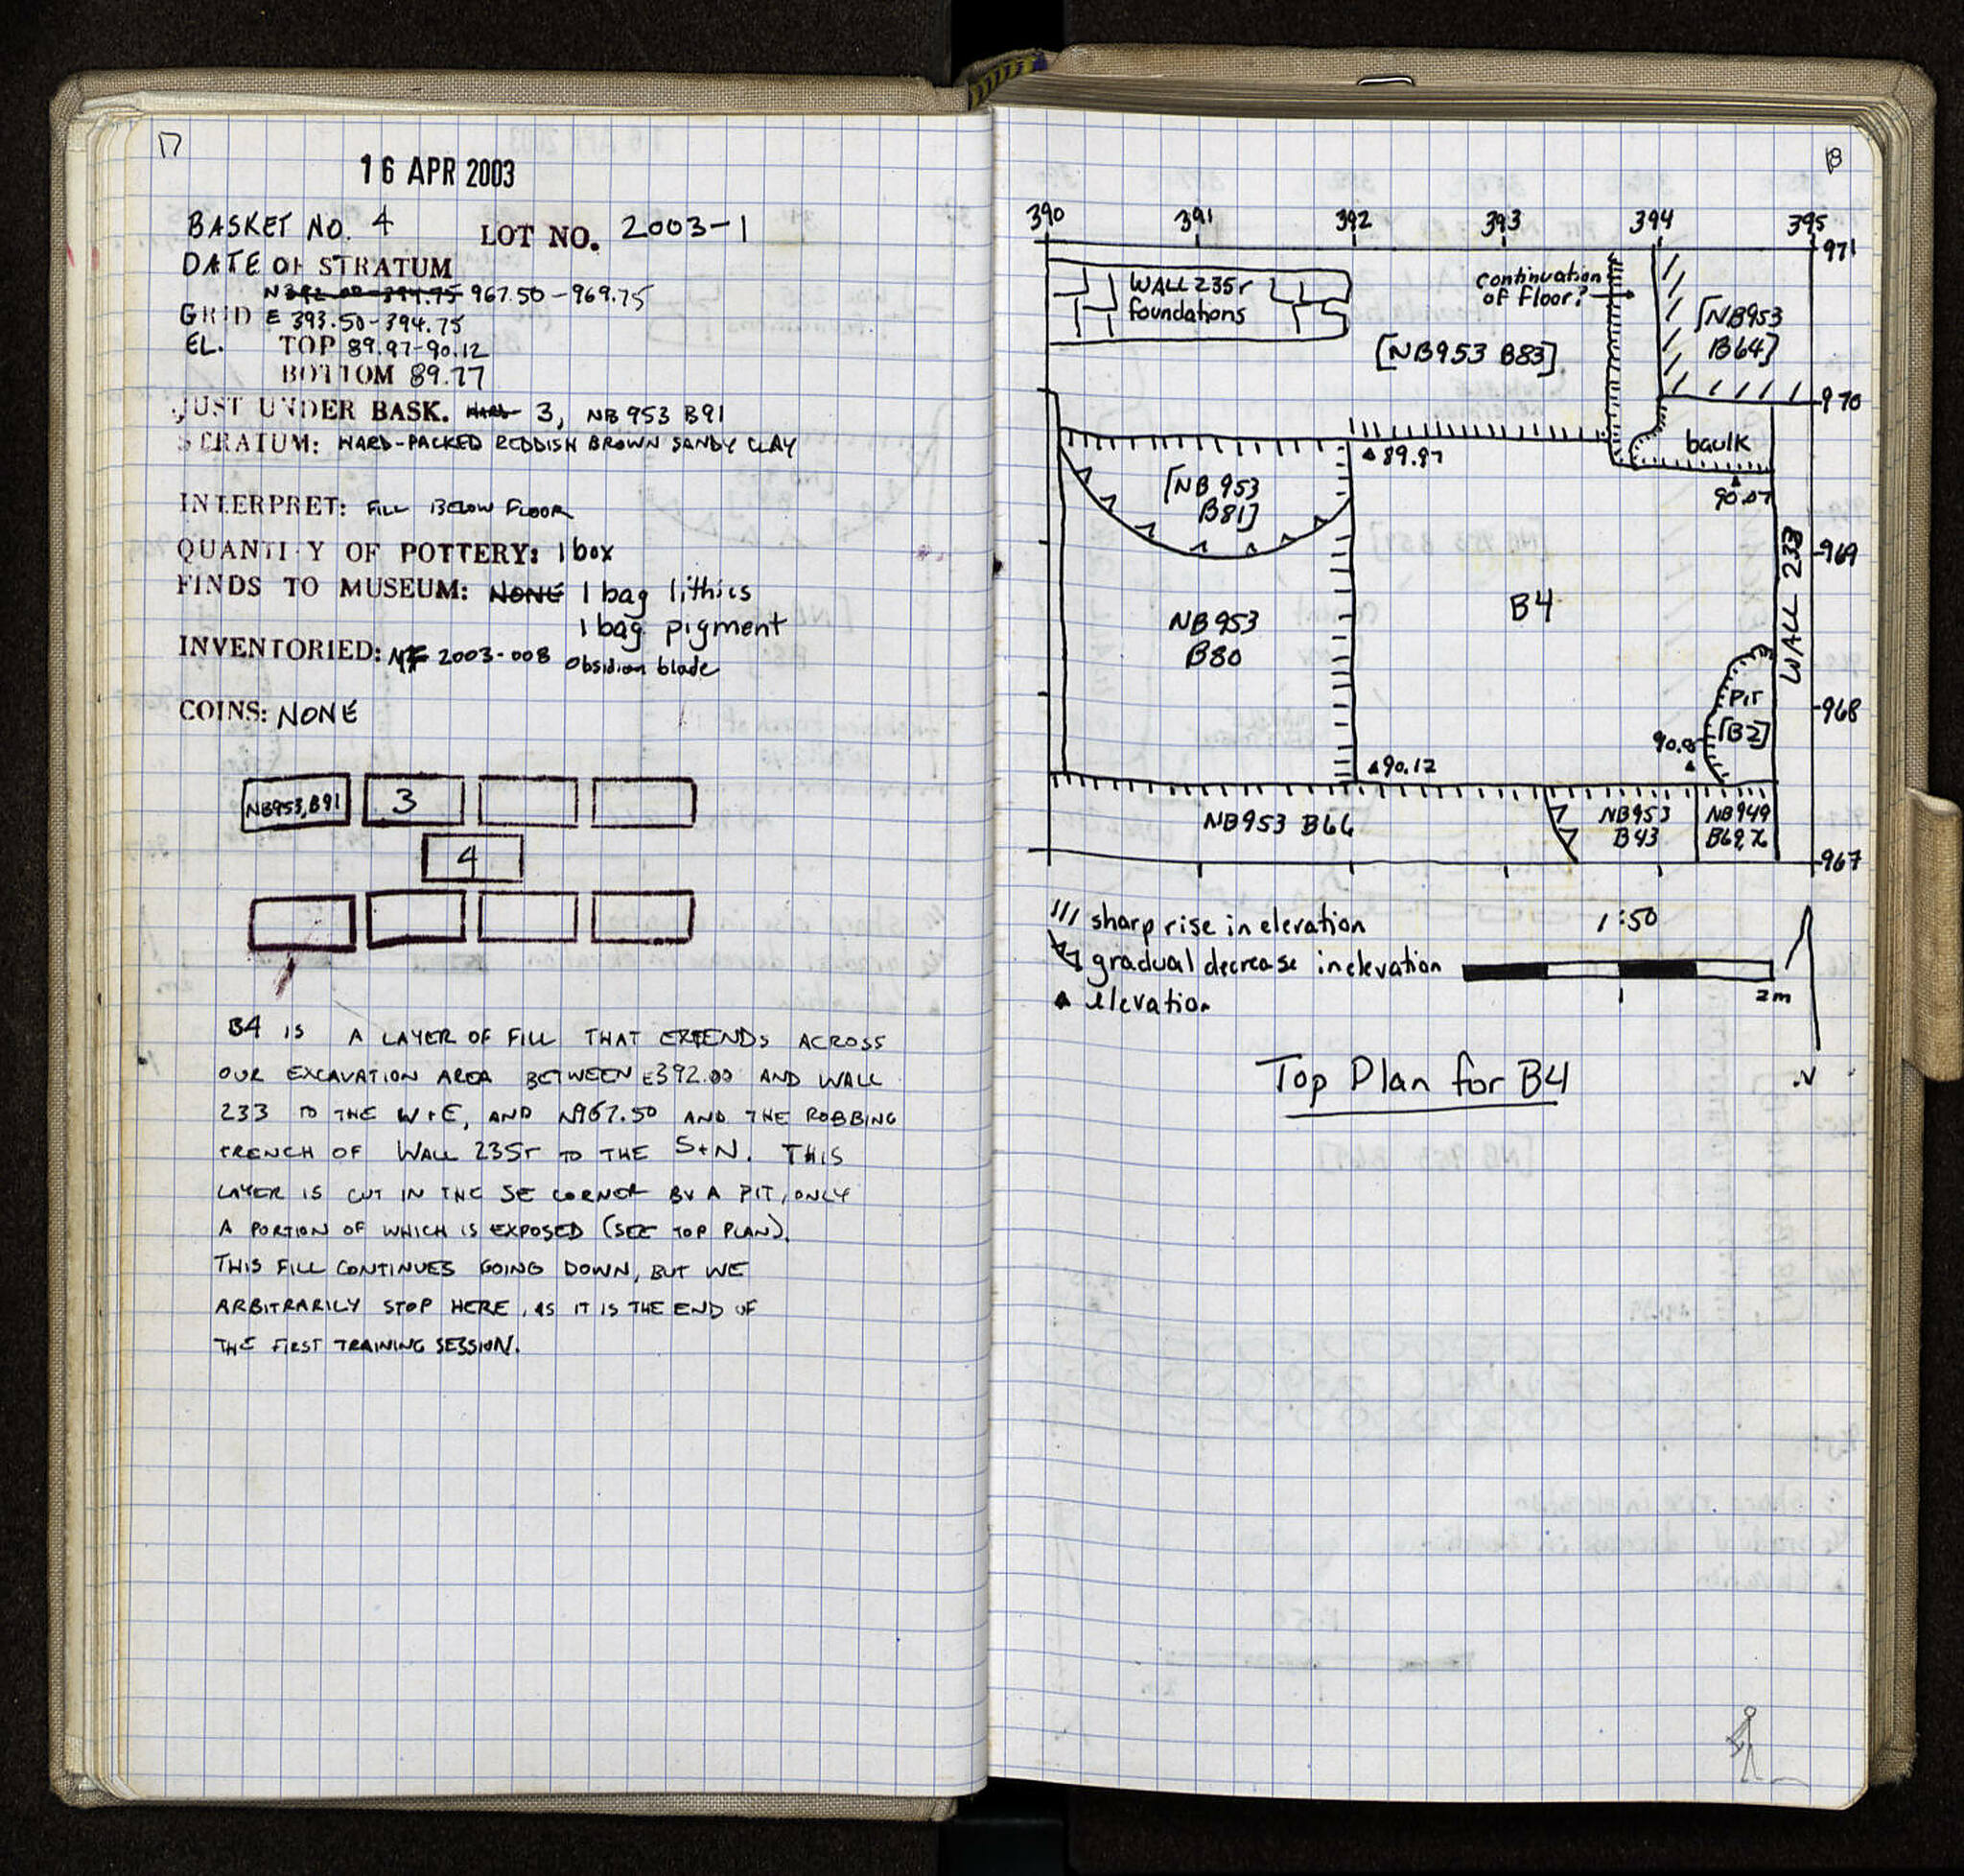 17
16 APR 2003
BASKET NO. 4 LOT NO. 2003-1
DATE OF STRATUM
N 392.00-394.75 967.50-969.75
GRID E 393.50-394.75
EL. TOP 89.97-90.12
BOTTOM 89.77
JUST UNDER BASK. 3, NB 953 B91
STRATUM: HARD-PACKED REDDISH BROWN SANDY CLAY
INTERPRET: FILL BELOW FLOOR
QUANTITY OF POTTERY: 1 box
FINDS TO MUSEUM: NONE 1 bag lithics
1 bag pigment
INVENTORIED: MF 2003-008 obsidian blade
COINS: NONE
NB953, B91 3
4
B4 IS A LAYER OF FILL THAT EXTENDS ACROSS
OUR EXCAVATION AREA BETWEEN E392.00 AND WALL
233 TO THE W+E, AND N967.50 AND THE ROBBING
TRENCH OF WALL 235r TO THE S+N. THIS
LAYER IS CUT IN THE SE CORNER BY A PIT, ONLY
A PORTION OF WHICH IS EXPOSED (SEE TOP PLAN).
THIS FILL CONTINUES GOING DOWN, BUT WE
ARBITRARILY STOP HERE, AS IT IS THE END OF
THE FIRST TRAINING SESSION.
18
390 391 392 393 394 395
971
WALL 235r
foundations
continuation
of floor?
[NB953
B64]
[NB953 B83]
970
baulk
89.97
90.07
[NB 953
B81]
969
WALL 233
B4
NB953
B80
PIT
[B2]
968
90.8
90.12
NB953 B66
NB953
B43
NB949
B69,76
967
/// sharp rise in elevation
gradual decrease in elevation
▲ elevation
1:50
1 2m
N
Top Plan for B4